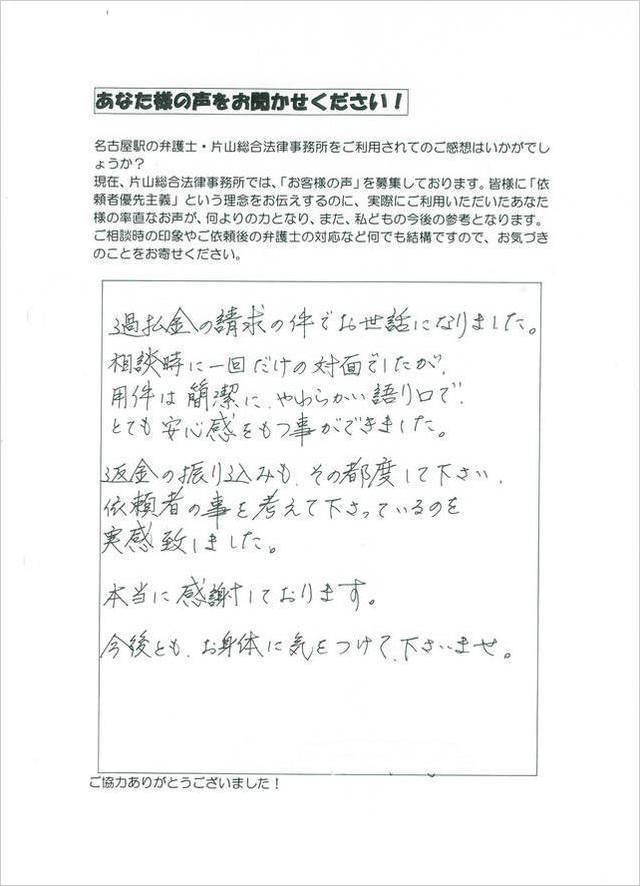 あなた様の声をお聞かせください！
名古屋駅の弁護士・片山総合法律事務所をご利用されてのご感想はいかがでし
ょうか？
現在、片山総合法律事務所では、「お客様の声」を募集しております。皆様に「依
頼者優先主義」という理念をお伝えするのに、実際にご利用いただいたあなた
様の率直なお声が、何よりの力となり、また、私どもの今後の参考となります。
ご相談時の印象やご依頼後の弁護士の対応など何でも結構ですので、お気づき
のことをお寄せください。
過払金の請求の件でお世話になりました。
相談時に一回だけの対面でしたが、
用件は簡潔に、やわらかい語り口で、
とても安心感をもつ事ができました。
返金の振り込みも、その都度して下さい、
依頼者の事を考えて下さっているのを
実感致しました。
本当に感謝しております。
今後とも、お身体に気をつけて、下さいませ。
ご協力ありがとうございました！